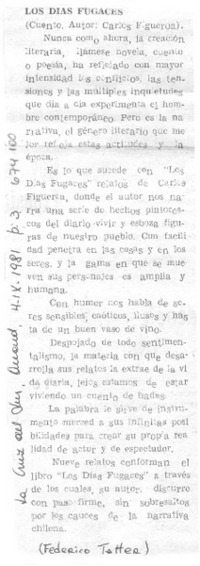 LOS DIAS FUGACES
(Cuento, Autor: Carlos Figueroa).
Nunca como ahora, la creación
literaria, llámese novela, cuento
o poesía, ha reflejado con mayor
intensidad los conflictos, las ten-
siones y las múltiples inquietudes
que día a día experimenta el hom-
bre contemporáneo. Pero es la na-
rrativa, el género literario que me
jor refleja estas actitudes y la
época.
Es lo que sucede con "Los
Días Fugaces" relatos de Carlos
Figueroa, donde el autor nos na-
rra una serie de hechos pintores-
cos del diario vivir y esboza figu-
ras de nuestro pueblo. Con facili-
dad penetra en las cosas y en los
seres, y la gama en que se mue-
ven sus personajes es amplia y
humana.
Con humor nos habla de se-
res sensibles, caóticos, ilusos y has
ta de un buen vaso de vino.
Despojado de todo sentimen-
talismo, la materia con que desa-
rrolla sus relatos la extrae de la vi
da diaria, lejos estamos de estar
viviendo un cuento de hadas.
La palabra le sirve de instru-
mento merced a sus infinitas posi
bilidades para crear su propia rea
lidad de actor y de espectador.
Nueve relatos conforman el
libro "Los Días Fugaces" a través
de los cuales, su autor, discurre
con paso firme, sin sobresaltos
por los cauces de la narrativa
chilena.
(Federico Tatter)
La Cruz del Sur, Ancud, 4-IX-1981 p. 3 674100